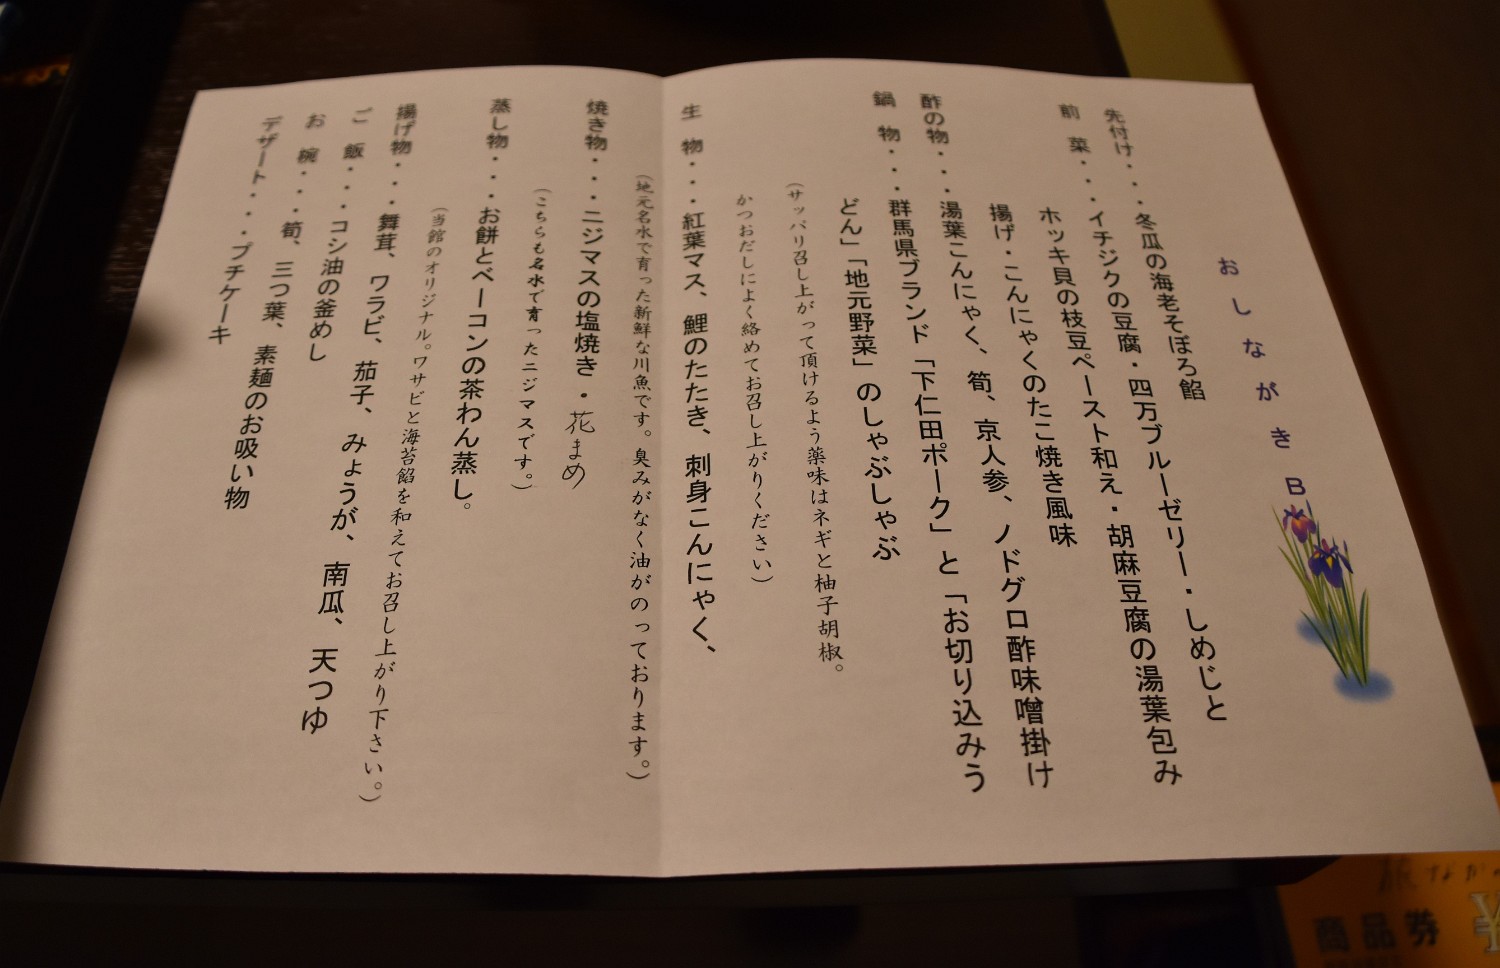 おしながきB
先付け・・・冬瓜の海老そぼろ餡
前　菜・・・イチジクの豆腐・四万ブルーゼリー・しめじと
ホッキ貝の枝豆ペースト和え・胡麻豆腐の湯葉包み
揚げ・こんにゃくのたこ焼き風味
酢の物・・・湯葉こんにゃく、筍、京人参、ノドグロ酢味噌掛け
鍋　物・・・群馬県ブランド「下仁田ポーク」と「お切り込みう
どん」「地元野菜」のしゃぶしゃぶ
（サッパリ召し上がって頂けるよう薬味はネギと柚子胡椒。
かつおだしによく絡めてお召し上がりください）
生　物・・・紅葉マス、鯉のたたき、刺身こんにゃく、
（地元名水で育った新鮮な川魚です。臭みがなく油がのっております。）
焼き物・・・ニジマスの塩焼き・花まめ
（こちらも名水で育ったニジマスです。）
蒸し物・・・お餅とベーコンの茶わん蒸し。
（当館のオリジナル。ワサビと海苔餡を和えてお召し上がり下さい。）
揚げ物・・・舞茸、ワラビ、茄子、みょうが、南瓜、天つゆ
ご　飯・・・コシ油の釜めし
お　椀・・・筍、三つ葉、素麺のお吸い物
デザート・・・プチケーキ
商品券
¥